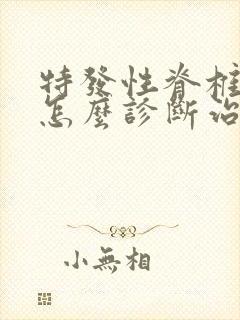 特發性脊柱
怎麼診斷治
小無相